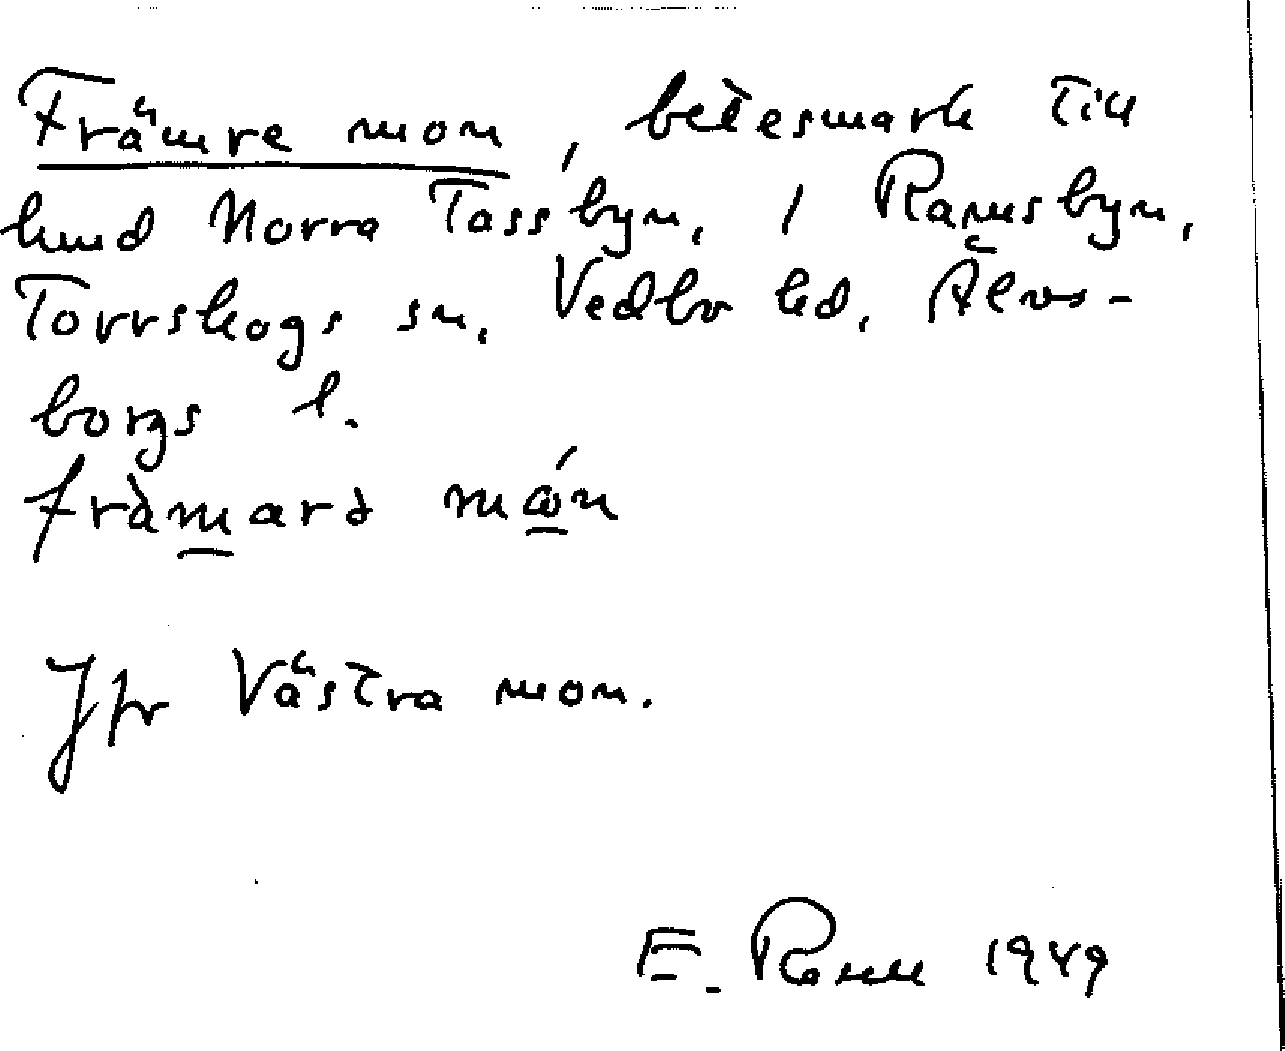 Främre mon, betesmark till
hmd Norra Tassbyn, 1 Ramsbyn,
Torrskogs sn, Vedbo hd, Älvs-
borgs l.
främard món
Jfr Västra mon.
E. 1949